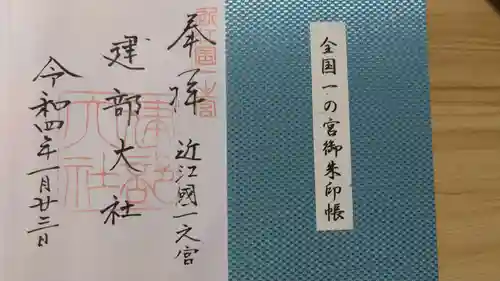 全国一の宮御朱印帳
奉拝
近江國一之宮
建部大社
令和四年一月廿三日
建部大社